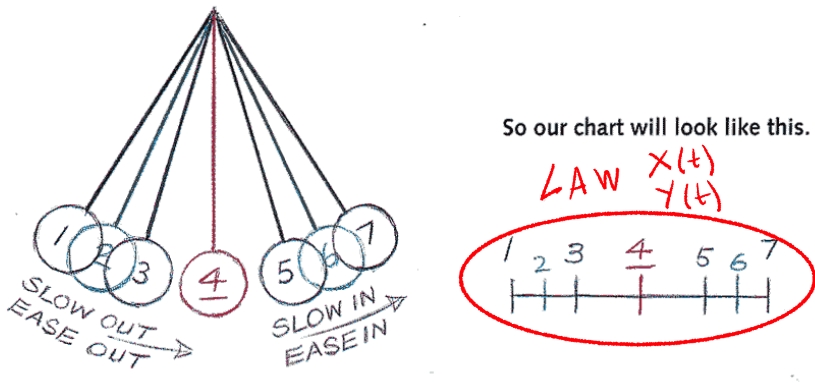 1 2 3 4 5 6 7
SLOW OUT
EASE OUT
SLOW IN
EASE IN
So our chart will look like this.
LAW X(t)
Y(t)
1 2 3 4 5 6 7